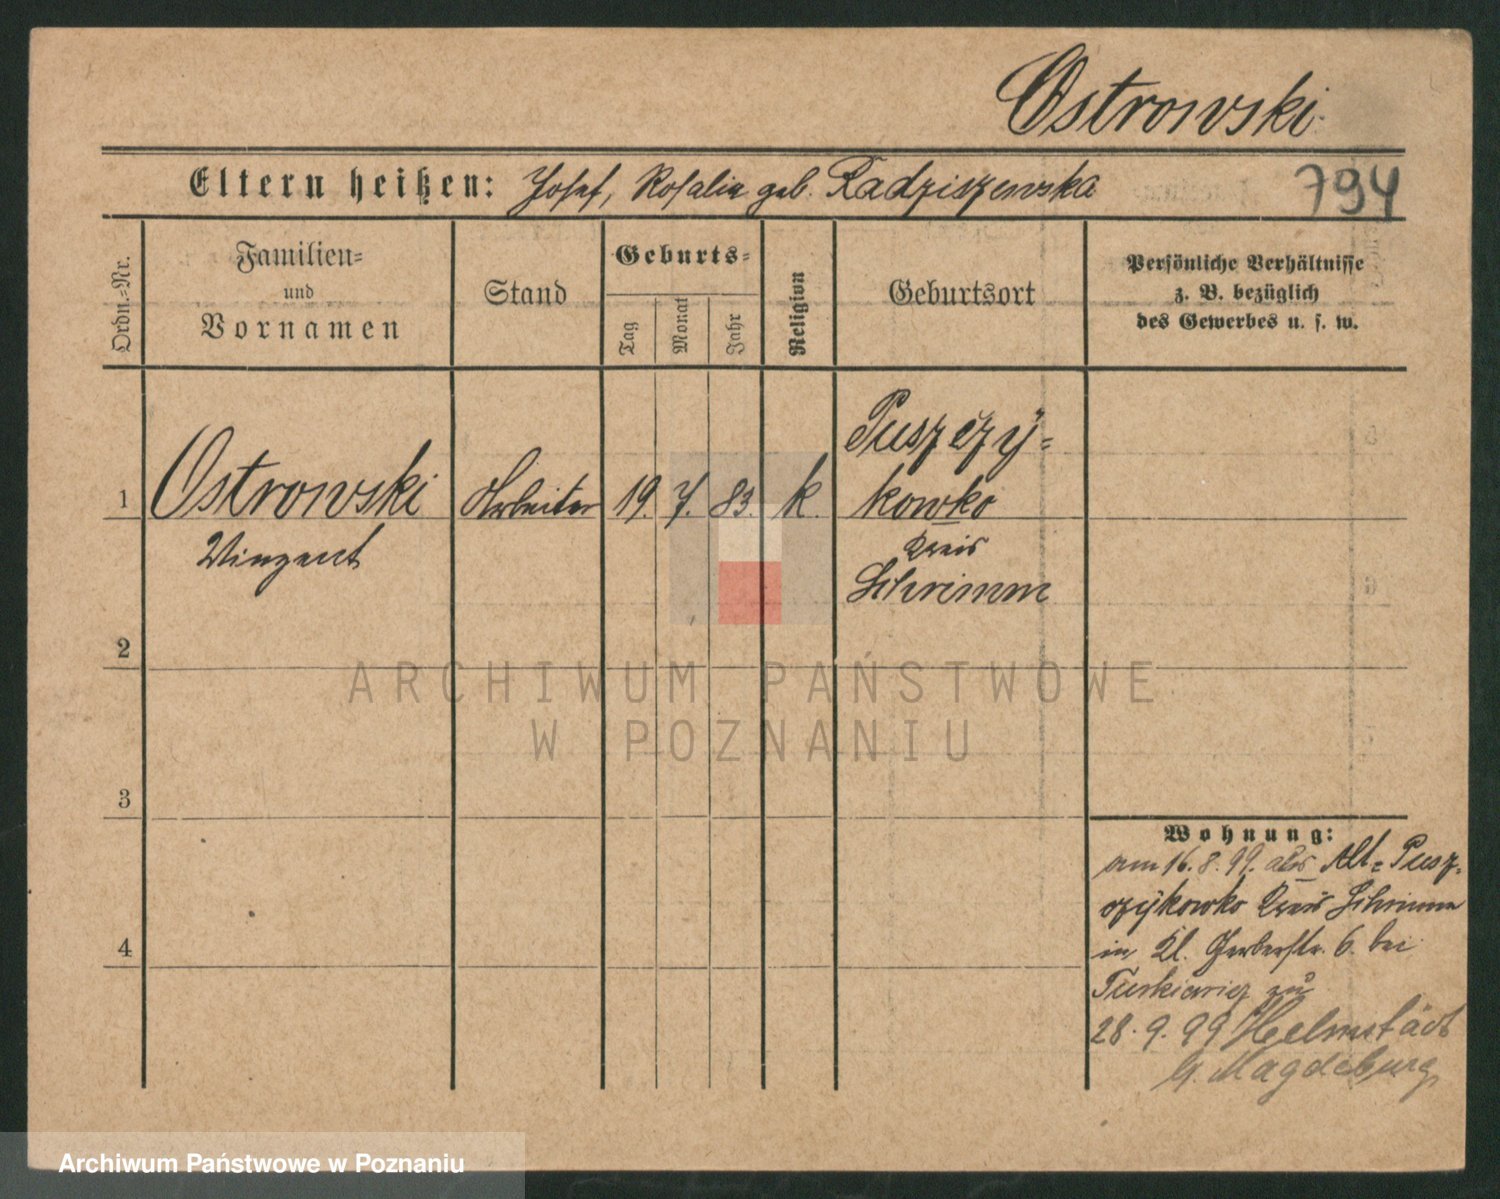 Ostrowski.
Eltern heißen: Josef, Rosalie geb. Radziszewska
794
Ordn.-Nr.
Familien-
und
Vornamen
Stand
Geburts-
Tag
Monat
Jahr
Religion
Geburtsort
Persönliche Verhältnisse
z. B. bezüglich
des Gewerbes u. s. w.
1
Ostrowski
Vinzent
Arbeiter
19.
7.
83.
k.
Puszczy-
kowko
Kreis
Schrimm
2
3
4
Wohnung:
am 16.8.99. aus Alt-Pusz-
czykowko Kreis Schrimm
in Kl. Gerberstr. 6. bei
zu
28.9.99 Helmstädt
b. Magdeburg
ARCHIWUM PAŃSTWOWE
W POZNANIU
Archiwum Państwowe w Poznaniu